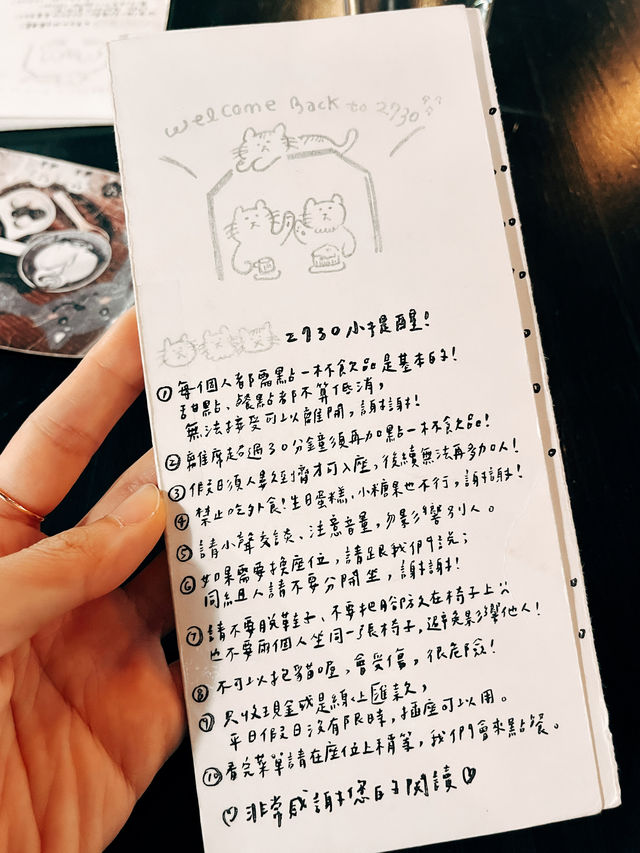 welcome Back to 2730
2730小提醒!
① 每個人都需點一杯飲品是基本的!
甜點、餐點都不算低消,
無法接受可以離開,謝謝!
② 離席超過30分鐘須再加點一杯飲品!
③ 假日須人數到齊才可入座,後續無法再多加人!
④ 禁止吃外食!生日蛋糕、小糖果也不行,謝謝!
⑤ 請小聲交談、注意音量,勿影響別人。
⑥ 如果需要換座位,請跟我們說;
同組人請不要分開坐,謝謝!
⑦ 請不要脫鞋子、不要把腳放在椅子上
也不要兩個人坐同一張椅子,避免影響他人!
⑧ 不可以抱貓喔,會受傷,很危險!
⑨ 只收現金或是線上匯款,
平日假日沒有限時,插座可以用。
⑩ 看完菜單請在座位上稍等,我們會來點餐。
♡ 非常感謝您的閱讀 ♡